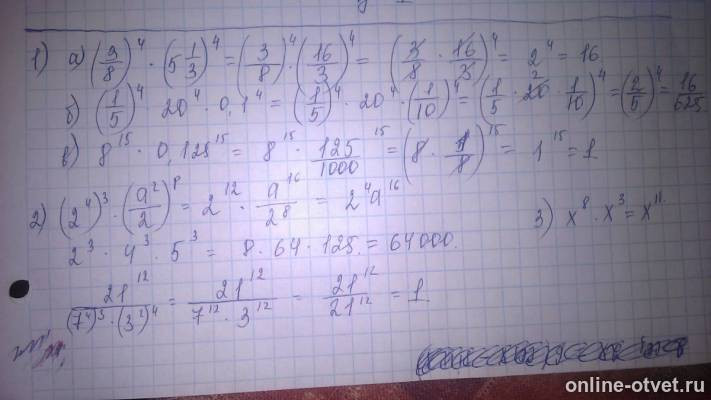 1) а) (9/8)⁴ · (5 1/3)⁴ = (3/8)⁴ · (16/3)⁴ = (3/8 · 16/3)⁴ = 2⁴ = 16
б) (1/5)⁴ 20⁴ · 0,1⁴ = (1/5)⁴ · 20⁴ · (1/10)⁴ = (1/5 · 20 2 · 1/10)⁴ = (2/5)⁴ = 16/625
в) 8¹⁵ · 0,125¹⁵ = 8¹⁵ · 125/1000 ¹⁵ = (8 · 1/8)¹⁵ = 1¹⁵ = 1
2) (2⁴)³ · (a²/2)⁸ = 2¹² · a¹⁶/2⁸ = 2⁴a¹⁶
3) x⁸ · x³ = x¹¹
2³ · 4³ · 5³ = 8 · 64 · 125 = 64000.
21¹²/((7⁴)³ · (3²)⁴) = 21¹²/(7¹² · 3¹²) = 21¹²/21¹² = 1
online-otvet.ru